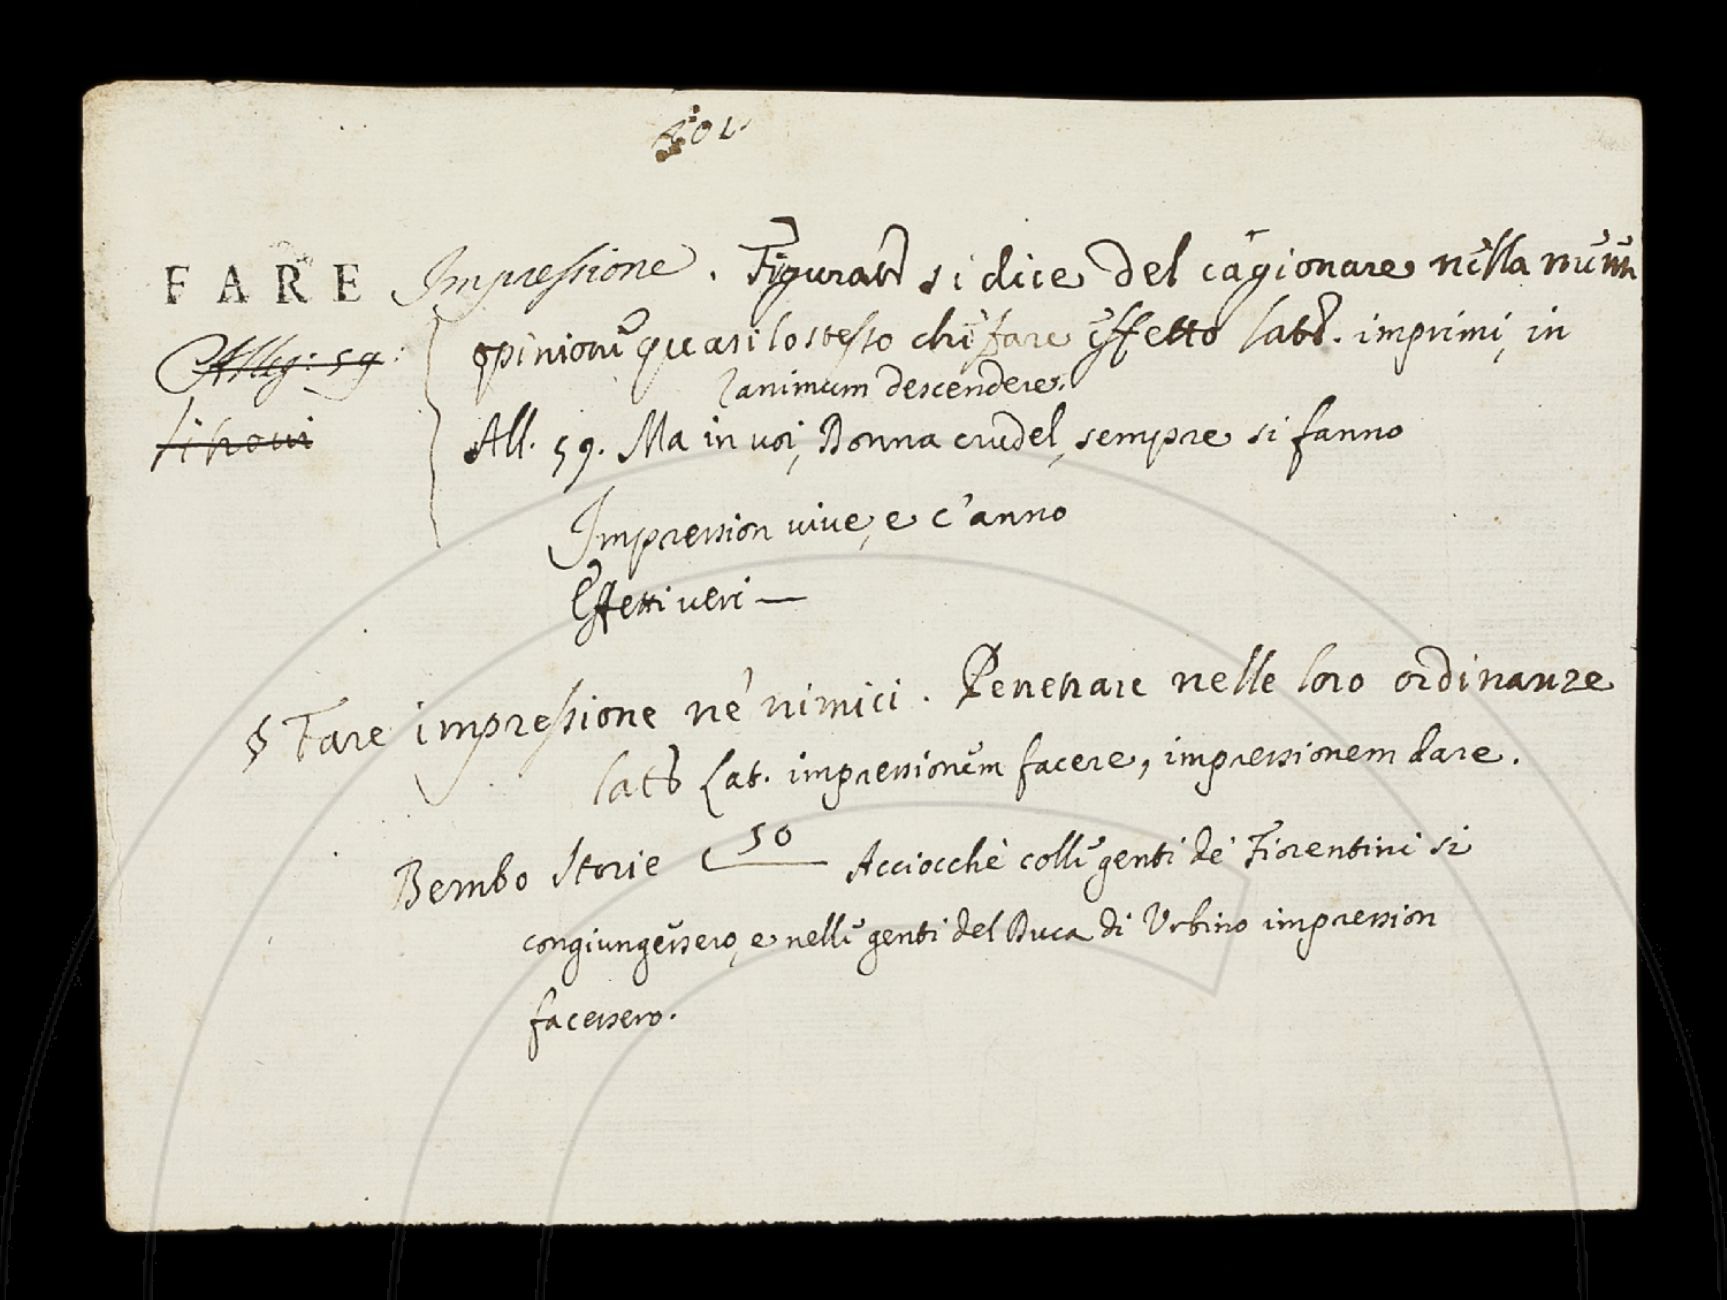 201.
FARE Impressione. Figurat.e si dice del cagionare nella mente
opinione quasi lo stesso che fare effetto lat. imprimi, in
animum descendere.
Alleg: 59:
All. 59. Ma in voi, Donna crudel, sempre si fanno
Impression vive, e c'anno
Effetti veri —
§ Fare impressione ne' nimici. Penetrare nelle loro ordinanze
Lat. impressionem facere, impressionem dare.
Bembo Storie 50 Acciocchè colle genti de' Fiorentini si
congiungessero, e nelle genti del Duca di Urbino impression
facessero.